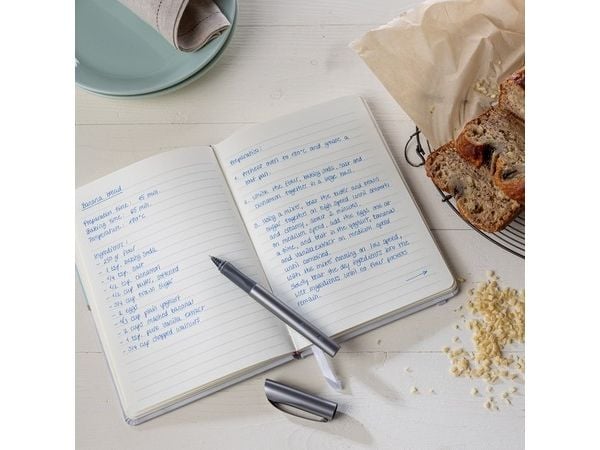 Banana bread
Preparation time: 15 min.
Baking Time: 65 min.
Temperature: 170°C
Ingredients:
- 250 g flour
- 1 tsp. baking soda
- 1/4 tsp. salt
- 1/2 tsp. cinnamon
- 1/2 cup butter, softened
- 3/4 cup brown sugar
- 2 eggs
- 1/3 cup plain yoghurt
- 2 cups mashed banana
- 1 tsp. pure vanilla extract
- 3/4 cup chopped walnuts
Preparation:
1. Preheat oven to 170°C and grease a
loaf pan.
2. Whisk the flour, baking soda, salt and
cinnamon together in a large bowl.
3. Using a mixer, beat the butter and brown
sugar together on high speed until smooth
and creamy, about 2 minutes.
on medium speed, add the eggs one at
a time, and beat in the yoghurt, banana
and vanilla extract on medium speed
until combined.
with the mixer running on low speed,
slowly beat the dry ingredients into the
wet ingredients until no flour pockets
remain.